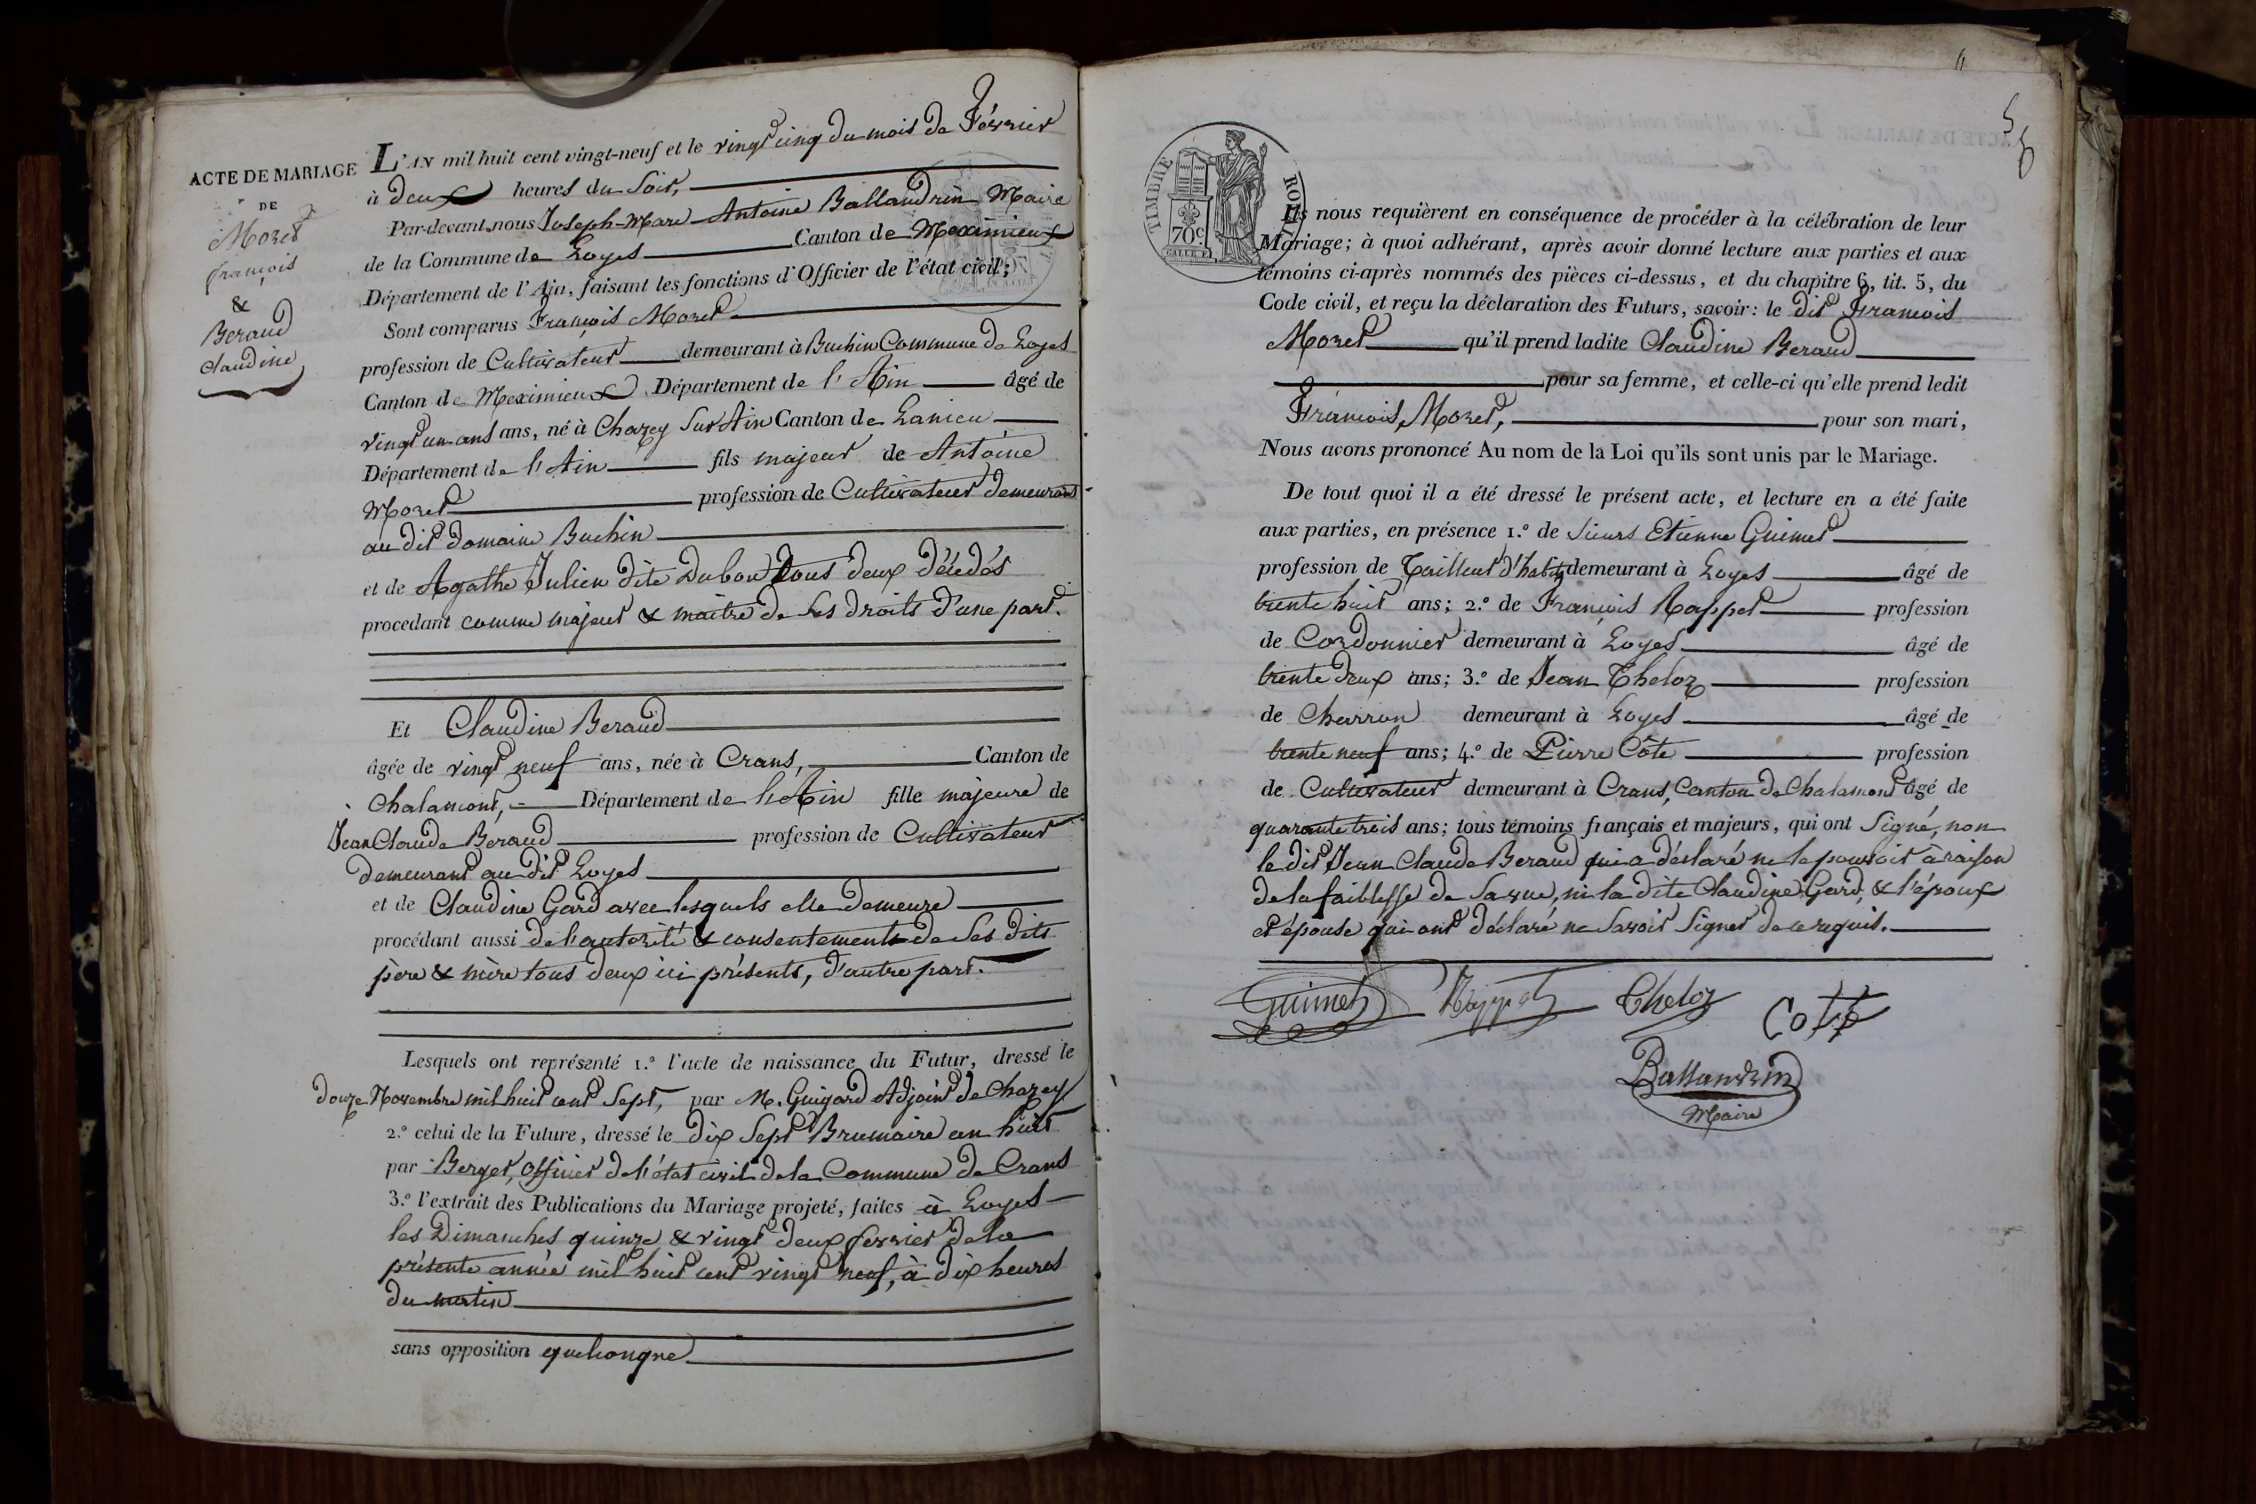 ACTE DE MARIAGE
DE
Moret
François
&
Beraud
Claudine
L'AN mil huit cent vingt-neuf et le vingt cinq du mois de Février
à deux heures du Soir,
Par-devant nous Joseph-Marie Antoine Ballandrin Maire
de la Commune de Loyes Canton de Meximieux
Département de l'Ain, faisant les fonctions d'Officier de l'état civil;
Sont comparus François Moret
profession de Cultivateur demeurant à Buchin Commune de Loyes
Canton de Meximieux Département de l'Ain âgé de
vingt un ans ans, né à Chazey Sur Ain Canton de Lanieu
Département de l'Ain fils majeur de Antoine
Moret profession de Cultivateur demeurant
au dit domaine Buchin
et de Agathe Julien dite Dubou tous deux décédés
procédant comme majeur & maitre de Ses droits d'une part.
Et Claudine Beraud
âgée de vingt neuf ans, née à Crans, Canton de
Chalamont, Département de l'Ain fille majeure de
Jean Claude Beraud profession de Cultivateur
demeurant au dit Loyes
et de Claudine Gard avec lesquels elle demeure
procédant aussi de l'autorité & consentement de Ses dits
père & mère tous deux ici présents, d'autre part.
Lesquels ont représenté 1.º l'acte de naissance du Futur, dressé le
douze Novembre mil huit cent Sept, par M. Guigard Adjoint de Chazey
2.º celui de la Future, dressé le dix Sept Brumaire an huit
par Berger, officier de l'état civil de la Commune de Crans
3.º l'extrait des Publications du Mariage projeté, faites à Loyes
les Dimanches quinze & vingt deux fevrier de la
présente année mil huit cent vingt neuf, à dix heures
du matin
sans opposition quelconque
TIMBRE ROYAL
70 c
Ils nous requièrent en conséquence de procéder à la célébration de leur
Mariage; à quoi adhérant, après avoir donné lecture aux parties et aux
témoins ci-après nommés des pièces ci-dessus, et du chapitre 6, tit. 5, du
Code civil, et reçu la déclaration des Futurs, savoir: le dit François
Moret qu'il prend ladite Claudine Beraud
pour sa femme, et celle-ci qu'elle prend ledit
François Moret, pour son mari,
Nous avons prononcé Au nom de la Loi qu'ils sont unis par le Mariage.
De tout quoi il a été dressé le présent acte, et lecture en a été faite
aux parties, en présence 1.º de Sieurs Etienne Guimet
profession de Tailleur d'habits demeurant à Loyes âgé de
trente huit ans; 2.º de François Rappet profession
de Cordonnier demeurant à Loyes âgé de
trente deux ans; 3.º de Jean Theloz profession
de Charron demeurant à Loyes âgé de
trente neuf ans; 4.º de Pierre Côte profession
de Cultivateur demeurant à Crans, Canton de Chalamont âgé de
quarante trois ans; tous témoins français et majeurs, qui ont Signé, non
le dit Jean Claude Beraud qui a déclaré ne le pouvoir à raison
de la faiblesse de Sa vue, ni la dite Claudine Gard, & l'époux
et épouse qui ont déclaré ne Savoir Signer de ce requis.
Guimet Rappet Theloz Cotte
Ballandrin
Maire